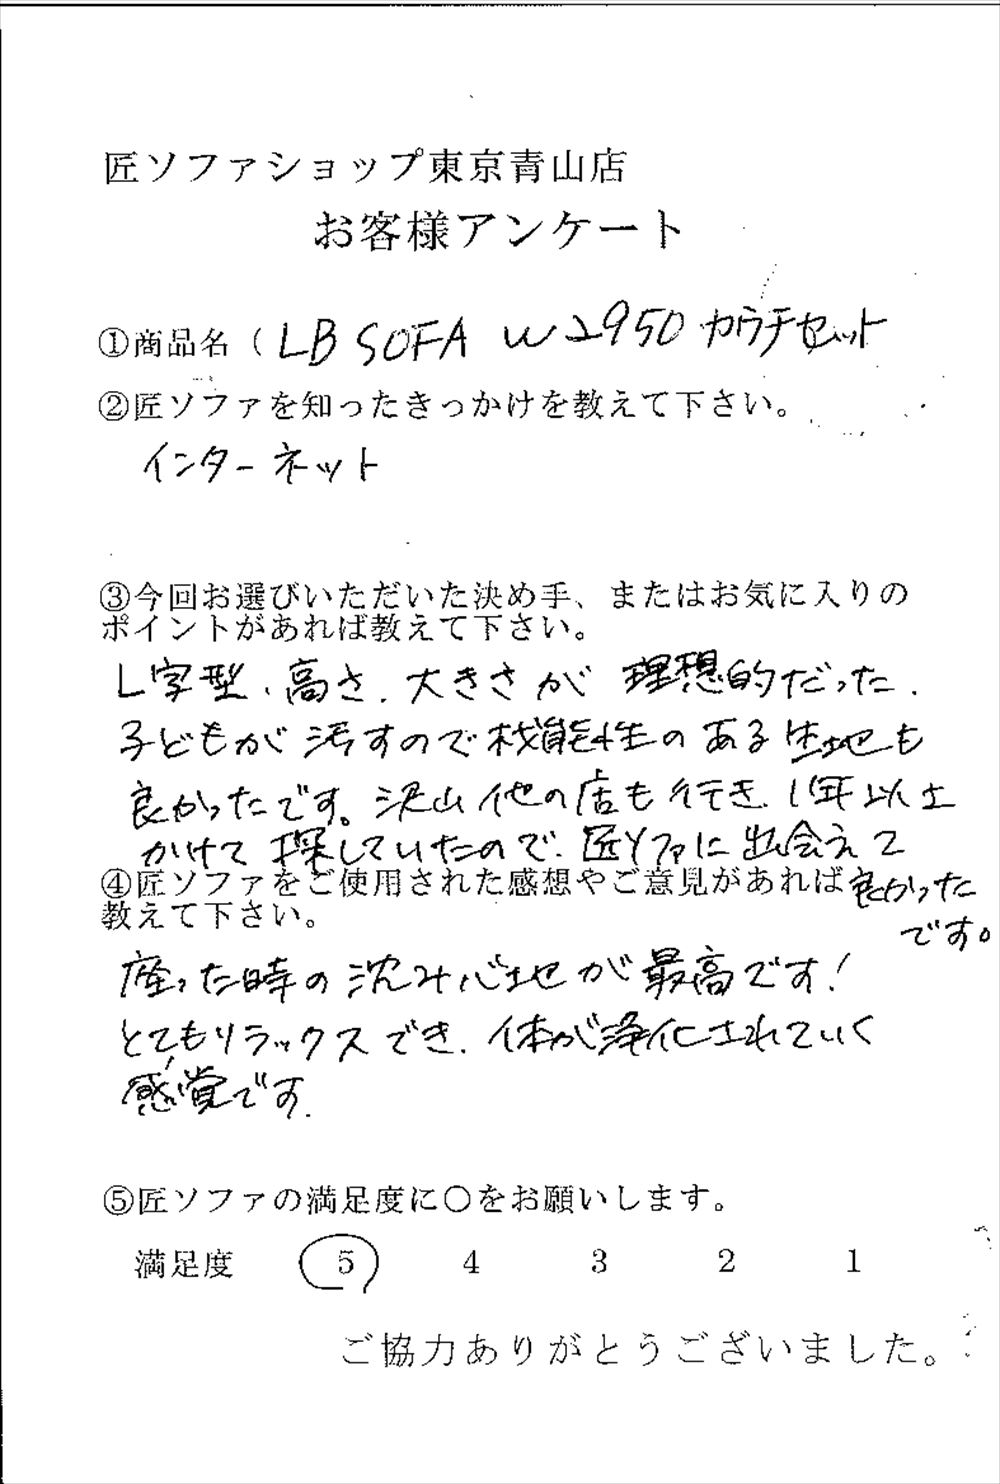 匠ソファショップ東京青山店
お客様アンケート
①商品名（LB SOFA W2950 カウチセット
②匠ソファを知ったきっかけを教えて下さい。
インターネット
③今回お選びいただいた決め手、またはお気に入りの
ポイントがあれば教えて下さい。
L字型、高さ、大きさが理想的だった、
子どもが汚すので機能性のある生地も
良かったです。沢山他の店も行き、1年以上
かけて探していたので、匠ソファに出会えて
良かった
です。
④匠ソファをご使用された感想やご意見があれば
教えて下さい。
座った時の沈み心地が最高です！
とてもリラックスでき、体が浄化されていく
感覚です。
⑤匠ソファの満足度に〇をお願いします。
満足度 5 4 3 2 1
ご協力ありがとうございました。